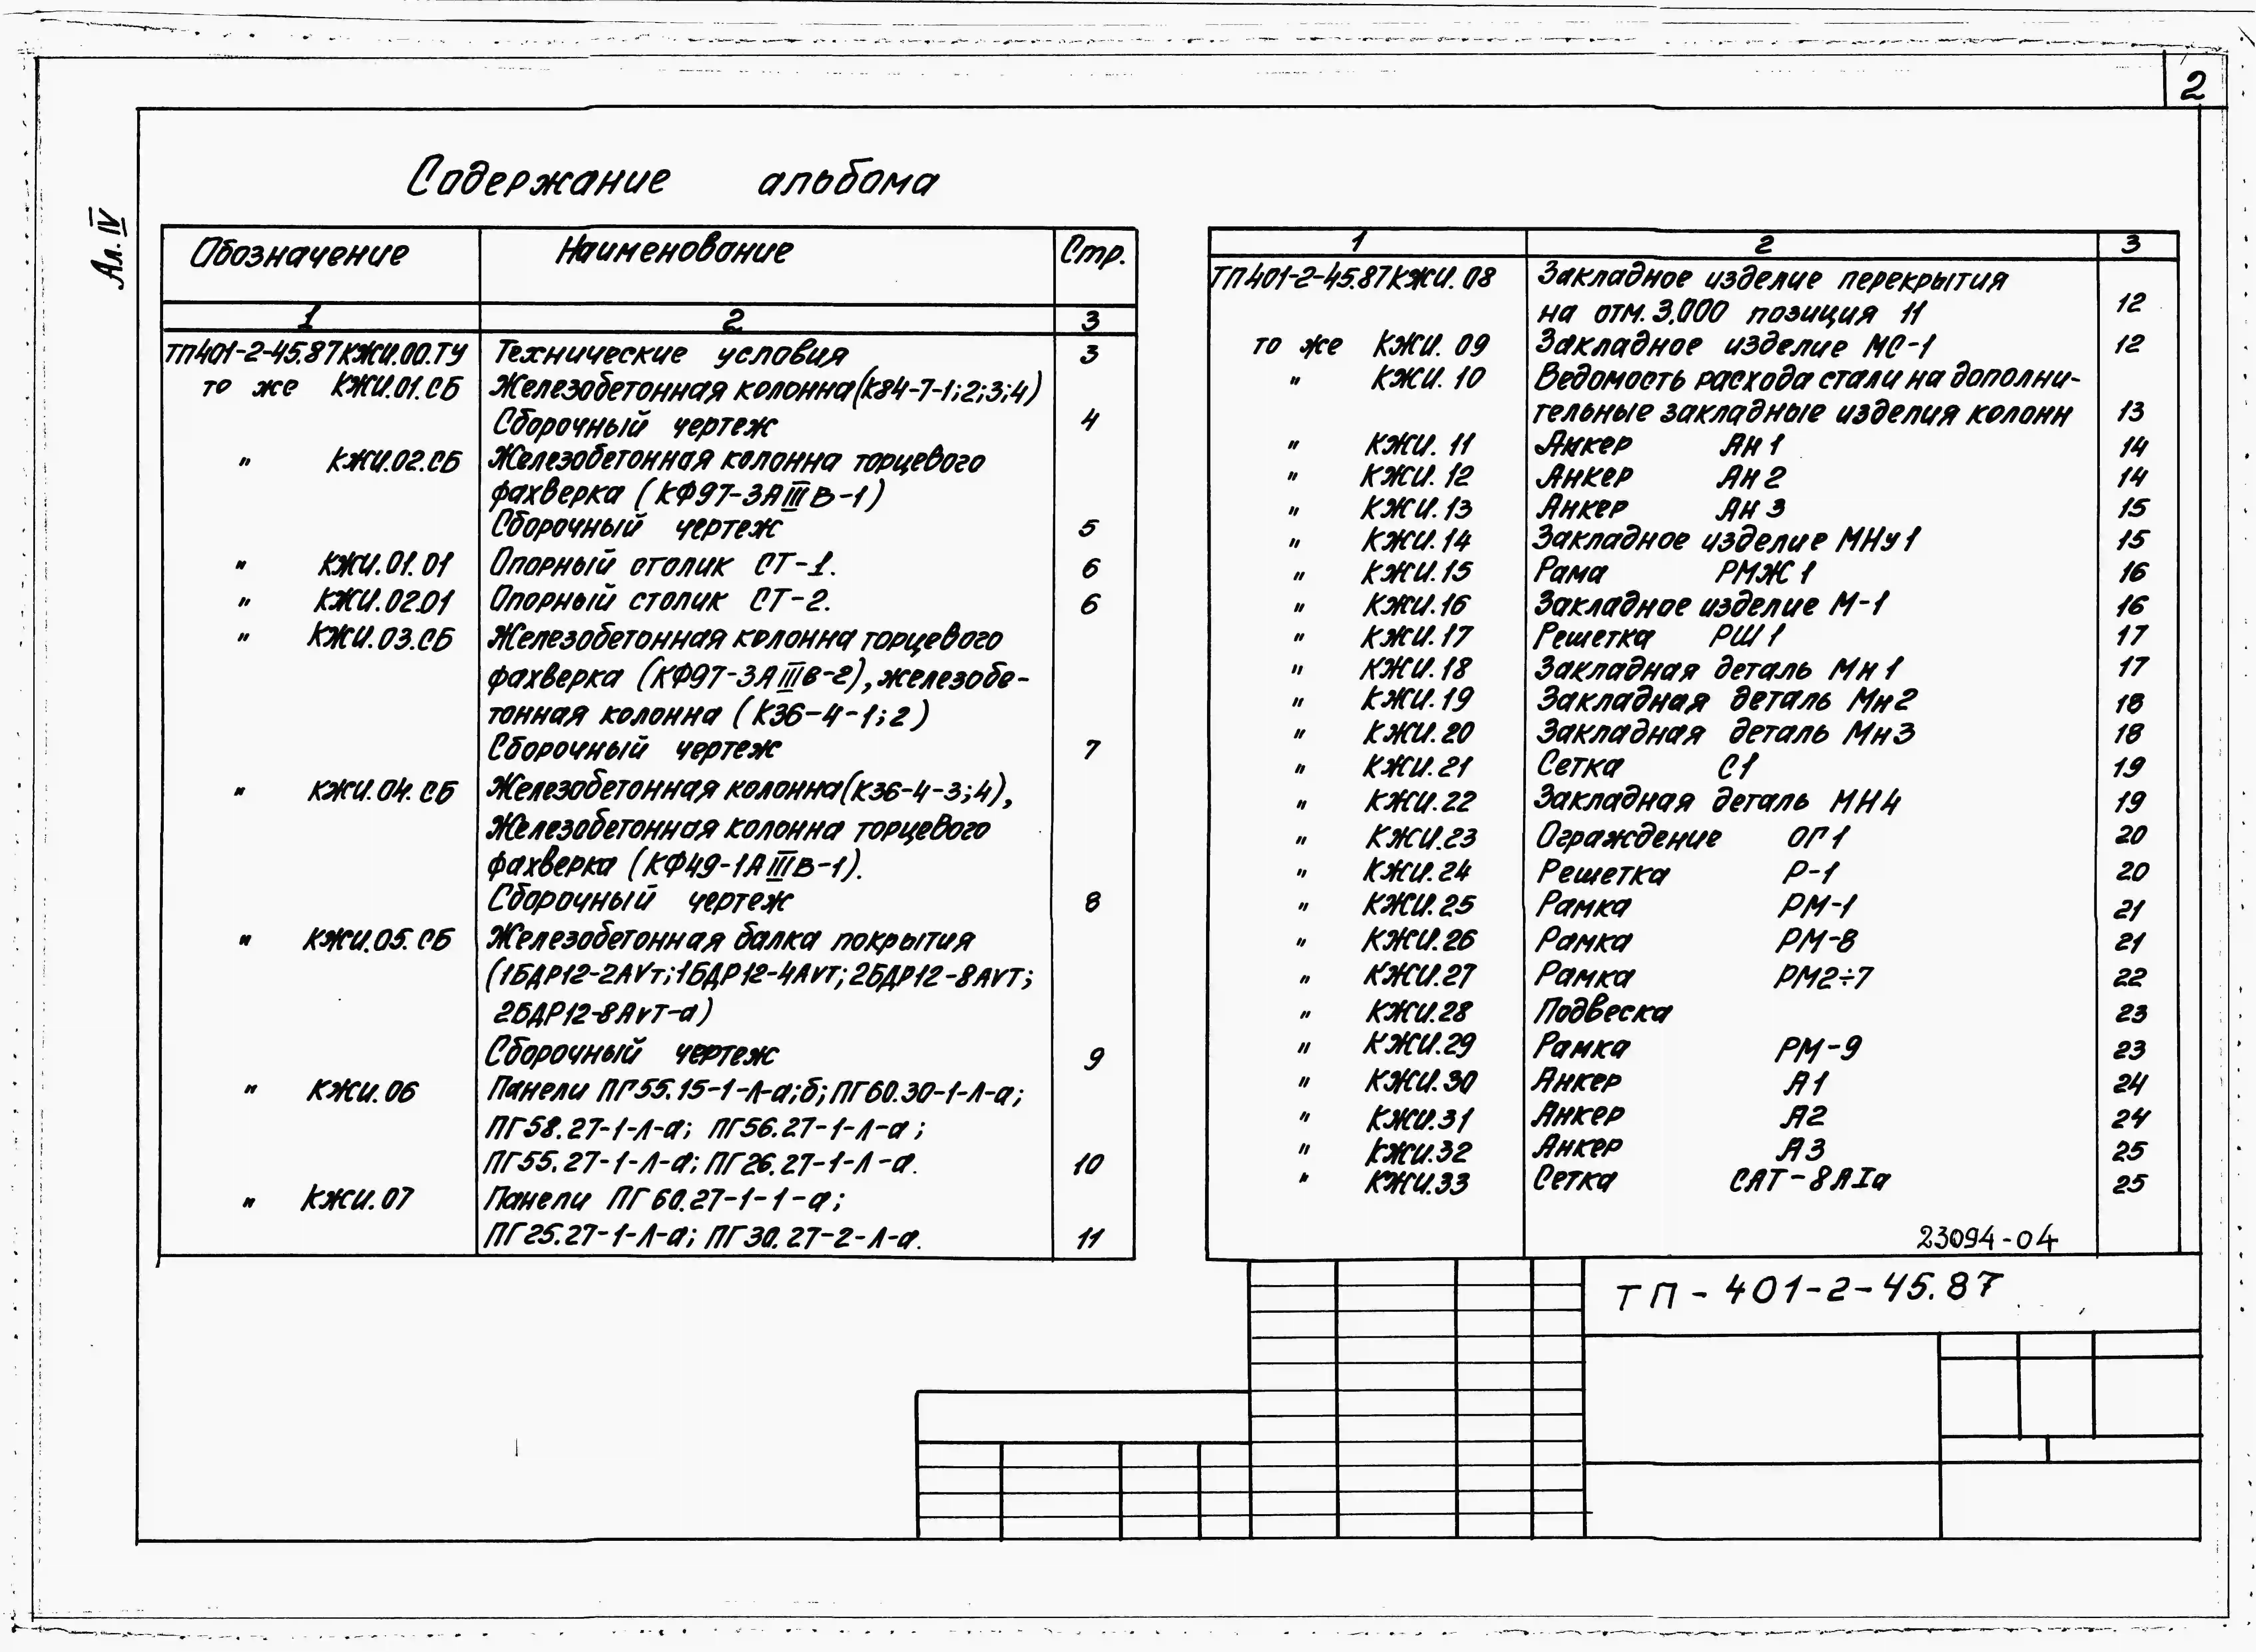 2
Ал. IV
Содержание альбома
Обозначение Наименование Стр.
1 2 3
ТП401-2-45.87КЖИ.00.ТУ Технические условия 3
то же КЖИ.01.СБ Железобетонная колонна (К84-7-1;2;3;4)
Сборочный чертеж 4
" КЖИ.02.СБ Железобетонная колонна торцевого
фахверка (КФ97-3АIIIВ-1)
Сборочный чертеж 5
" КЖИ.01.01 Опорный столик СТ-1. 6
" КЖИ.02.01 Опорный столик СТ-2. 6
" КЖИ.03.СБ Железобетонная колонна торцевого
фахверка (КФ97-3АIIIв-2), железобе-
тонная колонна (К36-4-1;2)
Сборочный чертеж 7
" КЖИ.04.СБ Железобетонная колонна (К36-4-3;4),
Железобетонная колонна торцевого
фахверка (КФ49-1АIIIВ-1).
Сборочный чертеж 8
" КЖИ.05.СБ Железобетонная балка покрытия
(1БДР12-2АVт; 1БДР12-4АVт; 2БДР12-8АVТ;
2БДР12-8АVТ-а)
Сборочный чертеж 9
" КЖИ.06 Панели ПГ55.15-1-Л-а;б; ПГ60.30-1-Л-а;
ПГ58.27-1-Л-а; ПГ56.27-1-Л-а;
ПГ55.27-1-Л-а; ПГ26.27-1-Л-а. 10
" КЖИ.07 Панели ПГ60.27-1-1-а;
ПГ25.27-1-Л-а; ПГ30.27-2-Л-а. 11
1 2 3
ТП401-2-45.87КЖИ.08 Закладное изделие перекрытия
на отм. 3.000 позиция 11 12
то же КЖИ.09 Закладное изделие МС-1 12
" КЖИ.10 Ведомость расхода стали на дополни-
тельные закладные изделия колонн 13
" КЖИ.11 Анкер АН1 14
" КЖИ.12 Анкер АН2 14
" КЖИ.13 Анкер АН3 15
" КЖИ.14 Закладное изделие МНу1 15
" КЖИ.15 Рама РМЖ1 16
" КЖИ.16 Закладное изделие М-1 16
" КЖИ.17 Решетка РШ1 17
" КЖИ.18 Закладная деталь Мн1 17
" КЖИ.19 Закладная деталь Мн2 18
" КЖИ.20 Закладная деталь Мн3 18
" КЖИ.21 Сетка С1 19
" КЖИ.22 Закладная деталь МН4 19
" КЖИ.23 Ограждение ОГ1 20
" КЖИ.24 Решетка Р-1 20
" КЖИ.25 Рамка РМ-1 21
" КЖИ.26 Рамка РМ-8 21
" КЖИ.27 Рамка РМ2÷7 22
" КЖИ.28 Подвеска 23
" КЖИ.29 Рамка РМ-9 23
" КЖИ.30 Анкер А1 24
" КЖИ.31 Анкер А2 24
" КЖИ.32 Анкер А3 25
" КЖИ.33 Сетка САТ-8АIа 25
23094-04
ТП-401-2-45.87